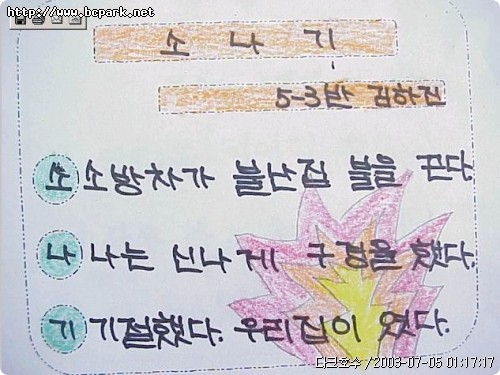 http://www.bcpark.net
소 나 기
5-3반 김하진
소 소방차가 불난집 불을 끈다.
나 나는 신나게 구경을 했다.
기 기절했다. 우리집이 였다.
다크호수 / 2003-07-05 01:17:17